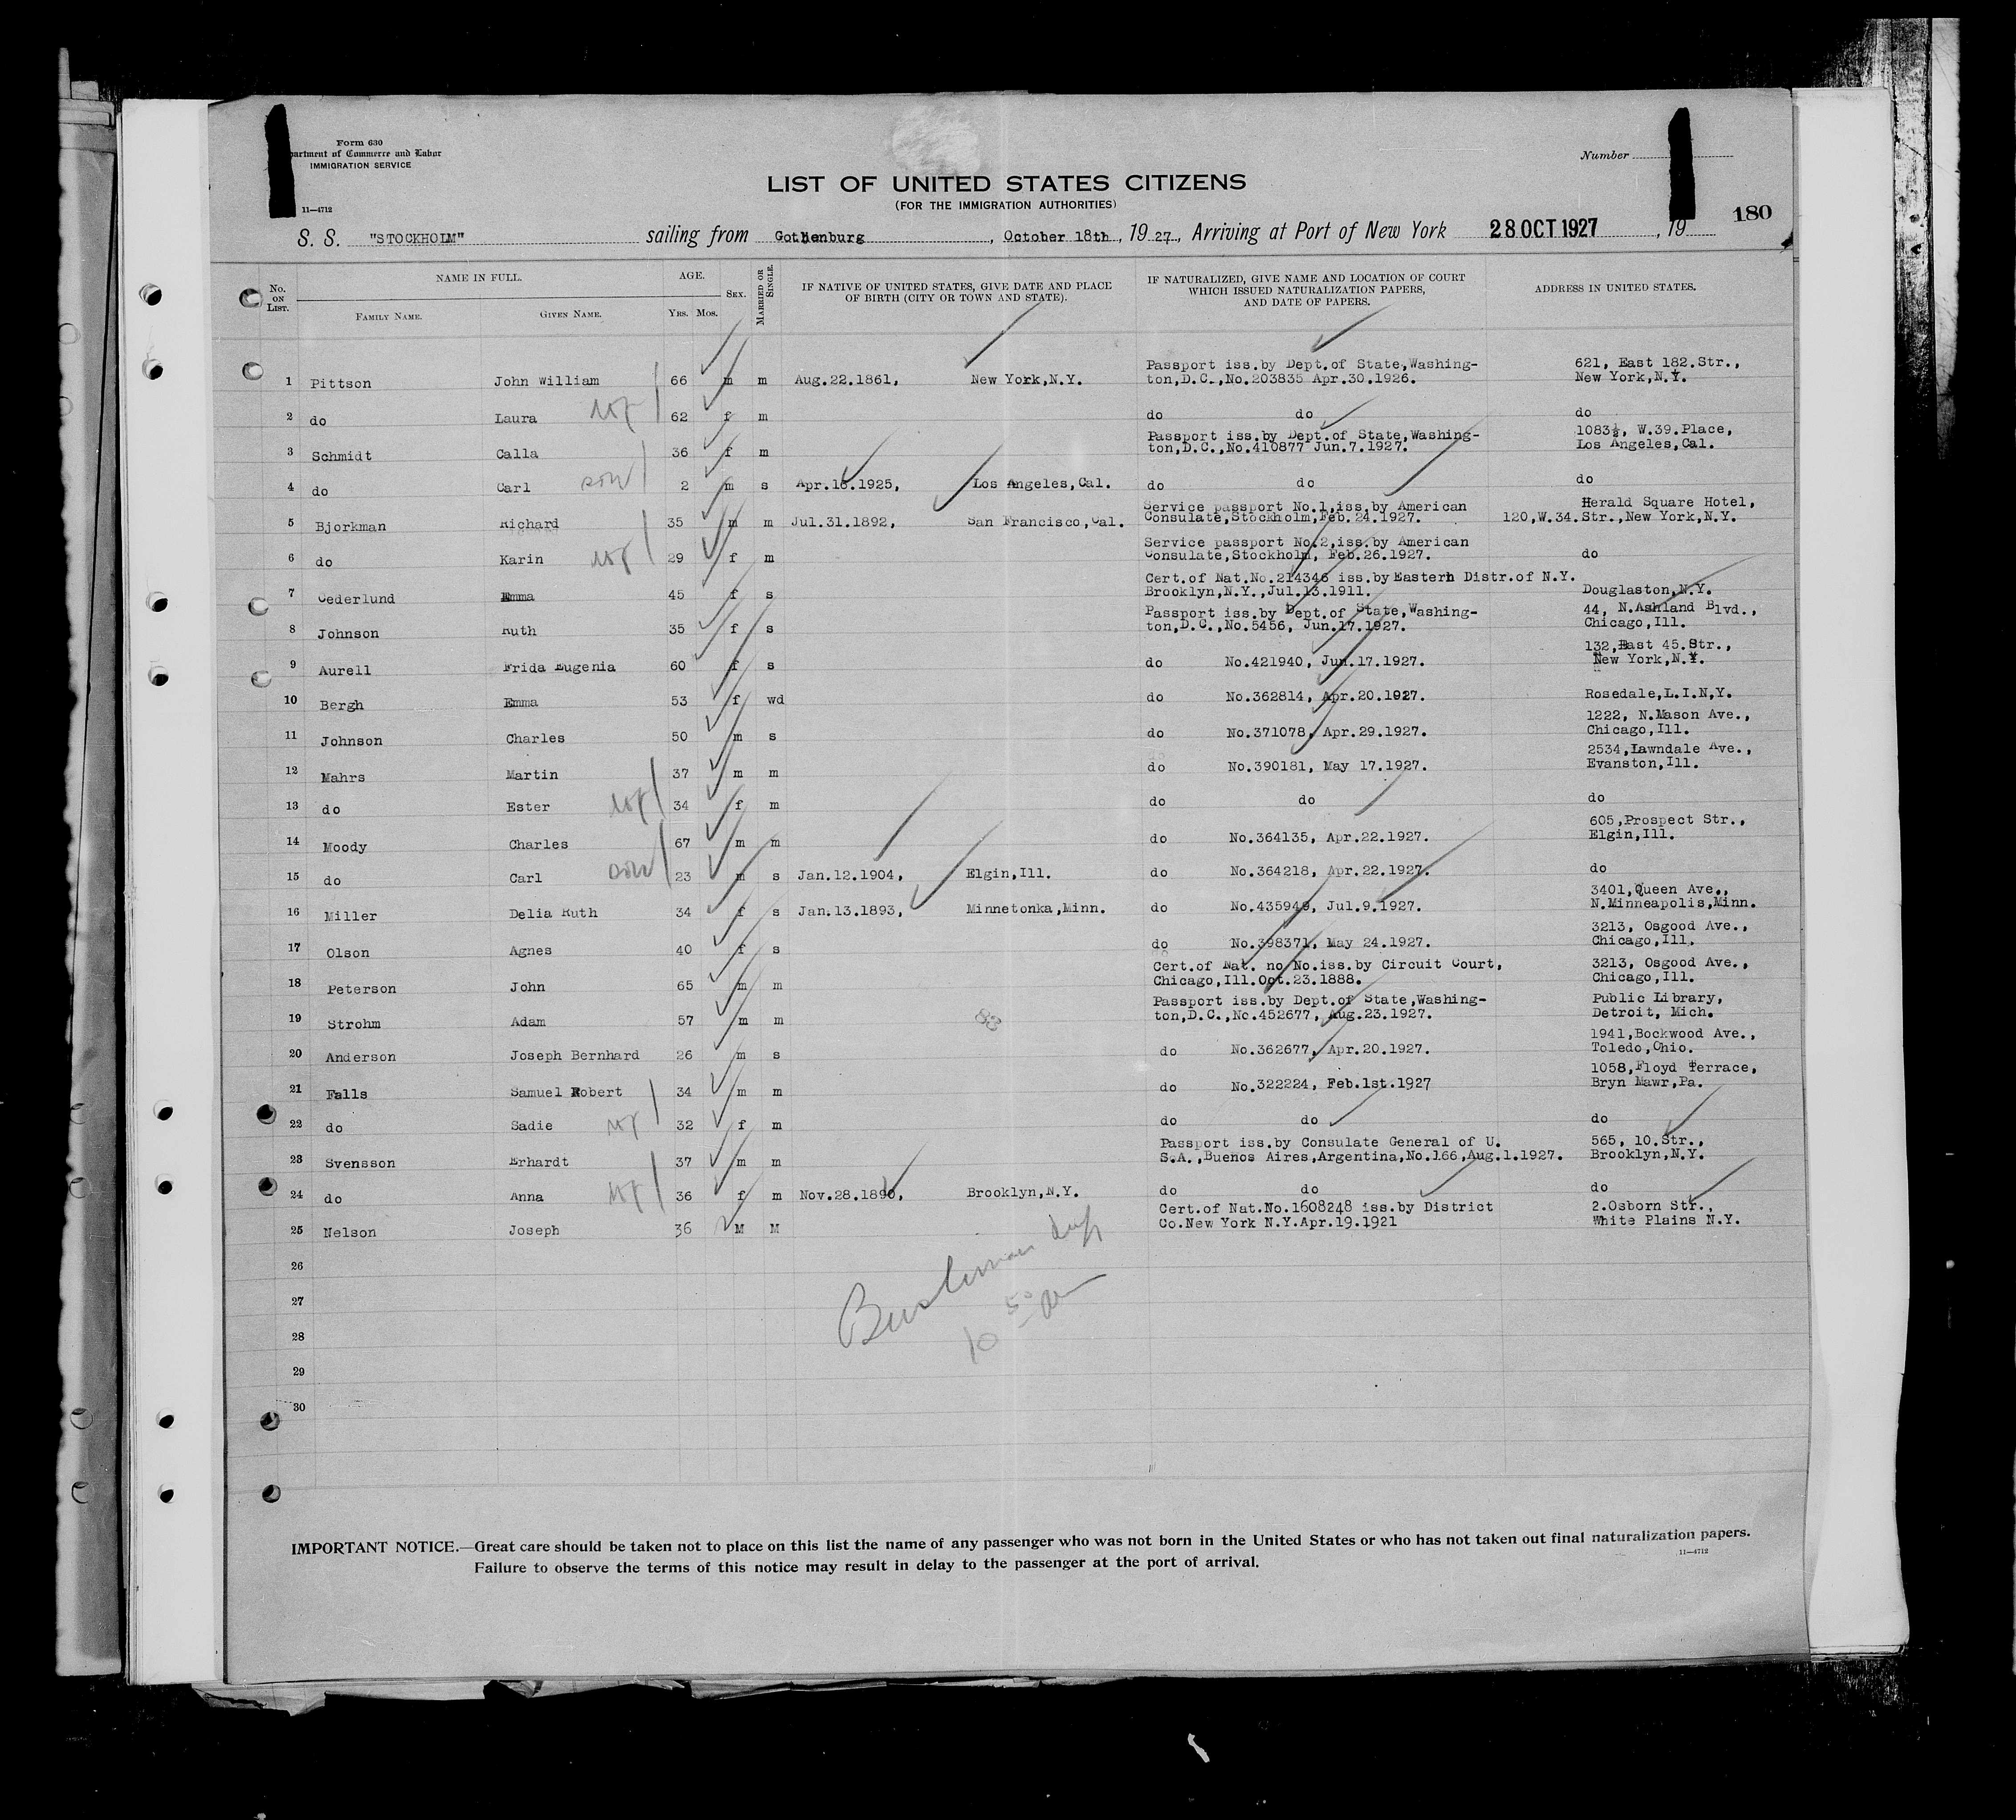 Form 630
partment of Commerce and Labor
IMMIGRATION SERVICE
11—4712
Number
LIST OF UNITED STATES CITIZENS
(FOR THE IMMIGRATION AUTHORITIES)
180
S. S. "STOCKHOLM" sailing from Gothenburg, October 18th, 1927, Arriving at Port of New York 28 OCT 1927, 19
No. ON LIST. NAME IN FULL. AGE. SEX. MARRIED OR SINGLE. IF NATIVE OF UNITED STATES, GIVE DATE AND PLACE OF BIRTH (CITY OR TOWN AND STATE). IF NATURALIZED, GIVE NAME AND LOCATION OF COURT WHICH ISSUED NATURALIZATION PAPERS, AND DATE OF PAPERS. ADDRESS IN UNITED STATES.
FAMILY NAME. GIVEN NAME. YRS. MOS.
Passport iss.by Dept.of State,Washing- 621, East 182.Str.,
1 Pittson John William 66 m m Aug.22.1861, New York,N.Y. ton,D.C.,No.203835 Apr.30.1926. New York,N.Y.
2 do Laura wf 62 f m do do do
Passport iss.by Dept.of State,Washing- 1083½, W.39.Place,
3 Schmidt Calla 36 f m ton,D.C.,No.410877 Jun.7.1927. Los Angeles,Cal.
4 do Carl son 2 m s Apr.16.1925, Los Angeles,Cal. do do do
Service passport No.1,iss.by American Herald Square Hotel,
5 Bjorkman Richard 35 m m Jul.31.1892, San Francisco,Cal. Consulate,Stockholm,Feb.24.1927. 120,W.34.Str.,New York,N.Y.
Service passport No.2,iss.by American
6 do Karin wf 29 f m Consulate,Stockholm, Feb.26.1927. do
Cert.of Nat.No.214346 iss.by Eastern Distr.of N.Y.
7 Cederlund Emma 45 f s Brooklyn,N.Y.,Jul.13.1911. Douglaston,N.Y.
Passport iss.by Dept.of State,Washing- 44, N.Ashland Blvd.,
8 Johnson Ruth 35 f s ton,D.C.,No.5456, Jun.17.1927. Chicago,Ill.
132,East 45.Str.,
9 Aurell Frida Eugenia 60 f s do No.421940, Jun.17.1927. New York,N.Y.
10 Bergh Emma 53 f wd do No.362814, Apr.20.1927. Rosedale,L.I.N,Y.
1222, N.Mason Ave.,
11 Johnson Charles 50 m s do No.371078, Apr.29.1927. Chicago,Ill.
2534,Lawndale Ave.,
12 Mahrs Martin 37 m m do No.390181, May 17.1927. Evanston,Ill.
13 do Ester wf 34 f m do do do
605,Prospect Str.,
14 Moody Charles 67 m m do No.364135, Apr.22.1927. Elgin,Ill.
15 do Carl son 23 m s Jan.12.1904, Elgin,Ill. do No.364218, Apr.22.1927. do
3401,Queen Ave.,
16 Miller Delia Ruth 34 f s Jan.13.1893, Minnetonka,Minn. do No.435949, Jul.9.1927. N.Minneapolis,Minn.
3213, Osgood Ave.,
17 Olson Agnes 40 f s do No.398371, May 24.1927. Chicago,Ill.
Cert.of Nat. no No.iss.by Circuit Court, 3213, Osgood Ave.,
18 Peterson John 65 m m Chicago,Ill.Oct.23.1888. Chicago,Ill.
Passport iss.by Dept.of State,Washing- Public Library,
19 Strohm Adam 57 m m ton,D.C.,No.452677, Aug.23.1927. Detroit, Mich.
1941,Bockwood Ave.,
20 Anderson Joseph Bernhard 26 m s do No.362677, Apr.20.1927. Toledo,Ohio.
1058,Floyd Terrace,
21 Falls Samuel Robert 34 m m do No.322224, Feb.1st.1927 Bryn Mawr,Pa.
22 do Sadie wf 32 f m do do do
Passport iss.by Consulate General of U. 565, 10.Str.,
23 Svensson Erhardt 37 m m S.A.,Buenos Aires,Argentina,No.166,Aug.1.1927. Brooklyn,N.Y.
24 do Anna wf 36 f m Nov.28.1890, Brooklyn,N.Y. do do do
Cert.of Nat.No.1608248 iss.by District 2.Osborn Str.,
25 Nelson Joseph 36 M M Co.New York N.Y.Apr.19.1921 White Plains N.Y.
26
27
28
29
30
IMPORTANT NOTICE.—Great care should be taken not to place on this list the name of any passenger who was not born in the United States or who has not taken out final naturalization papers.
Failure to observe the terms of this notice may result in delay to the passenger at the port of arrival.
11—4712